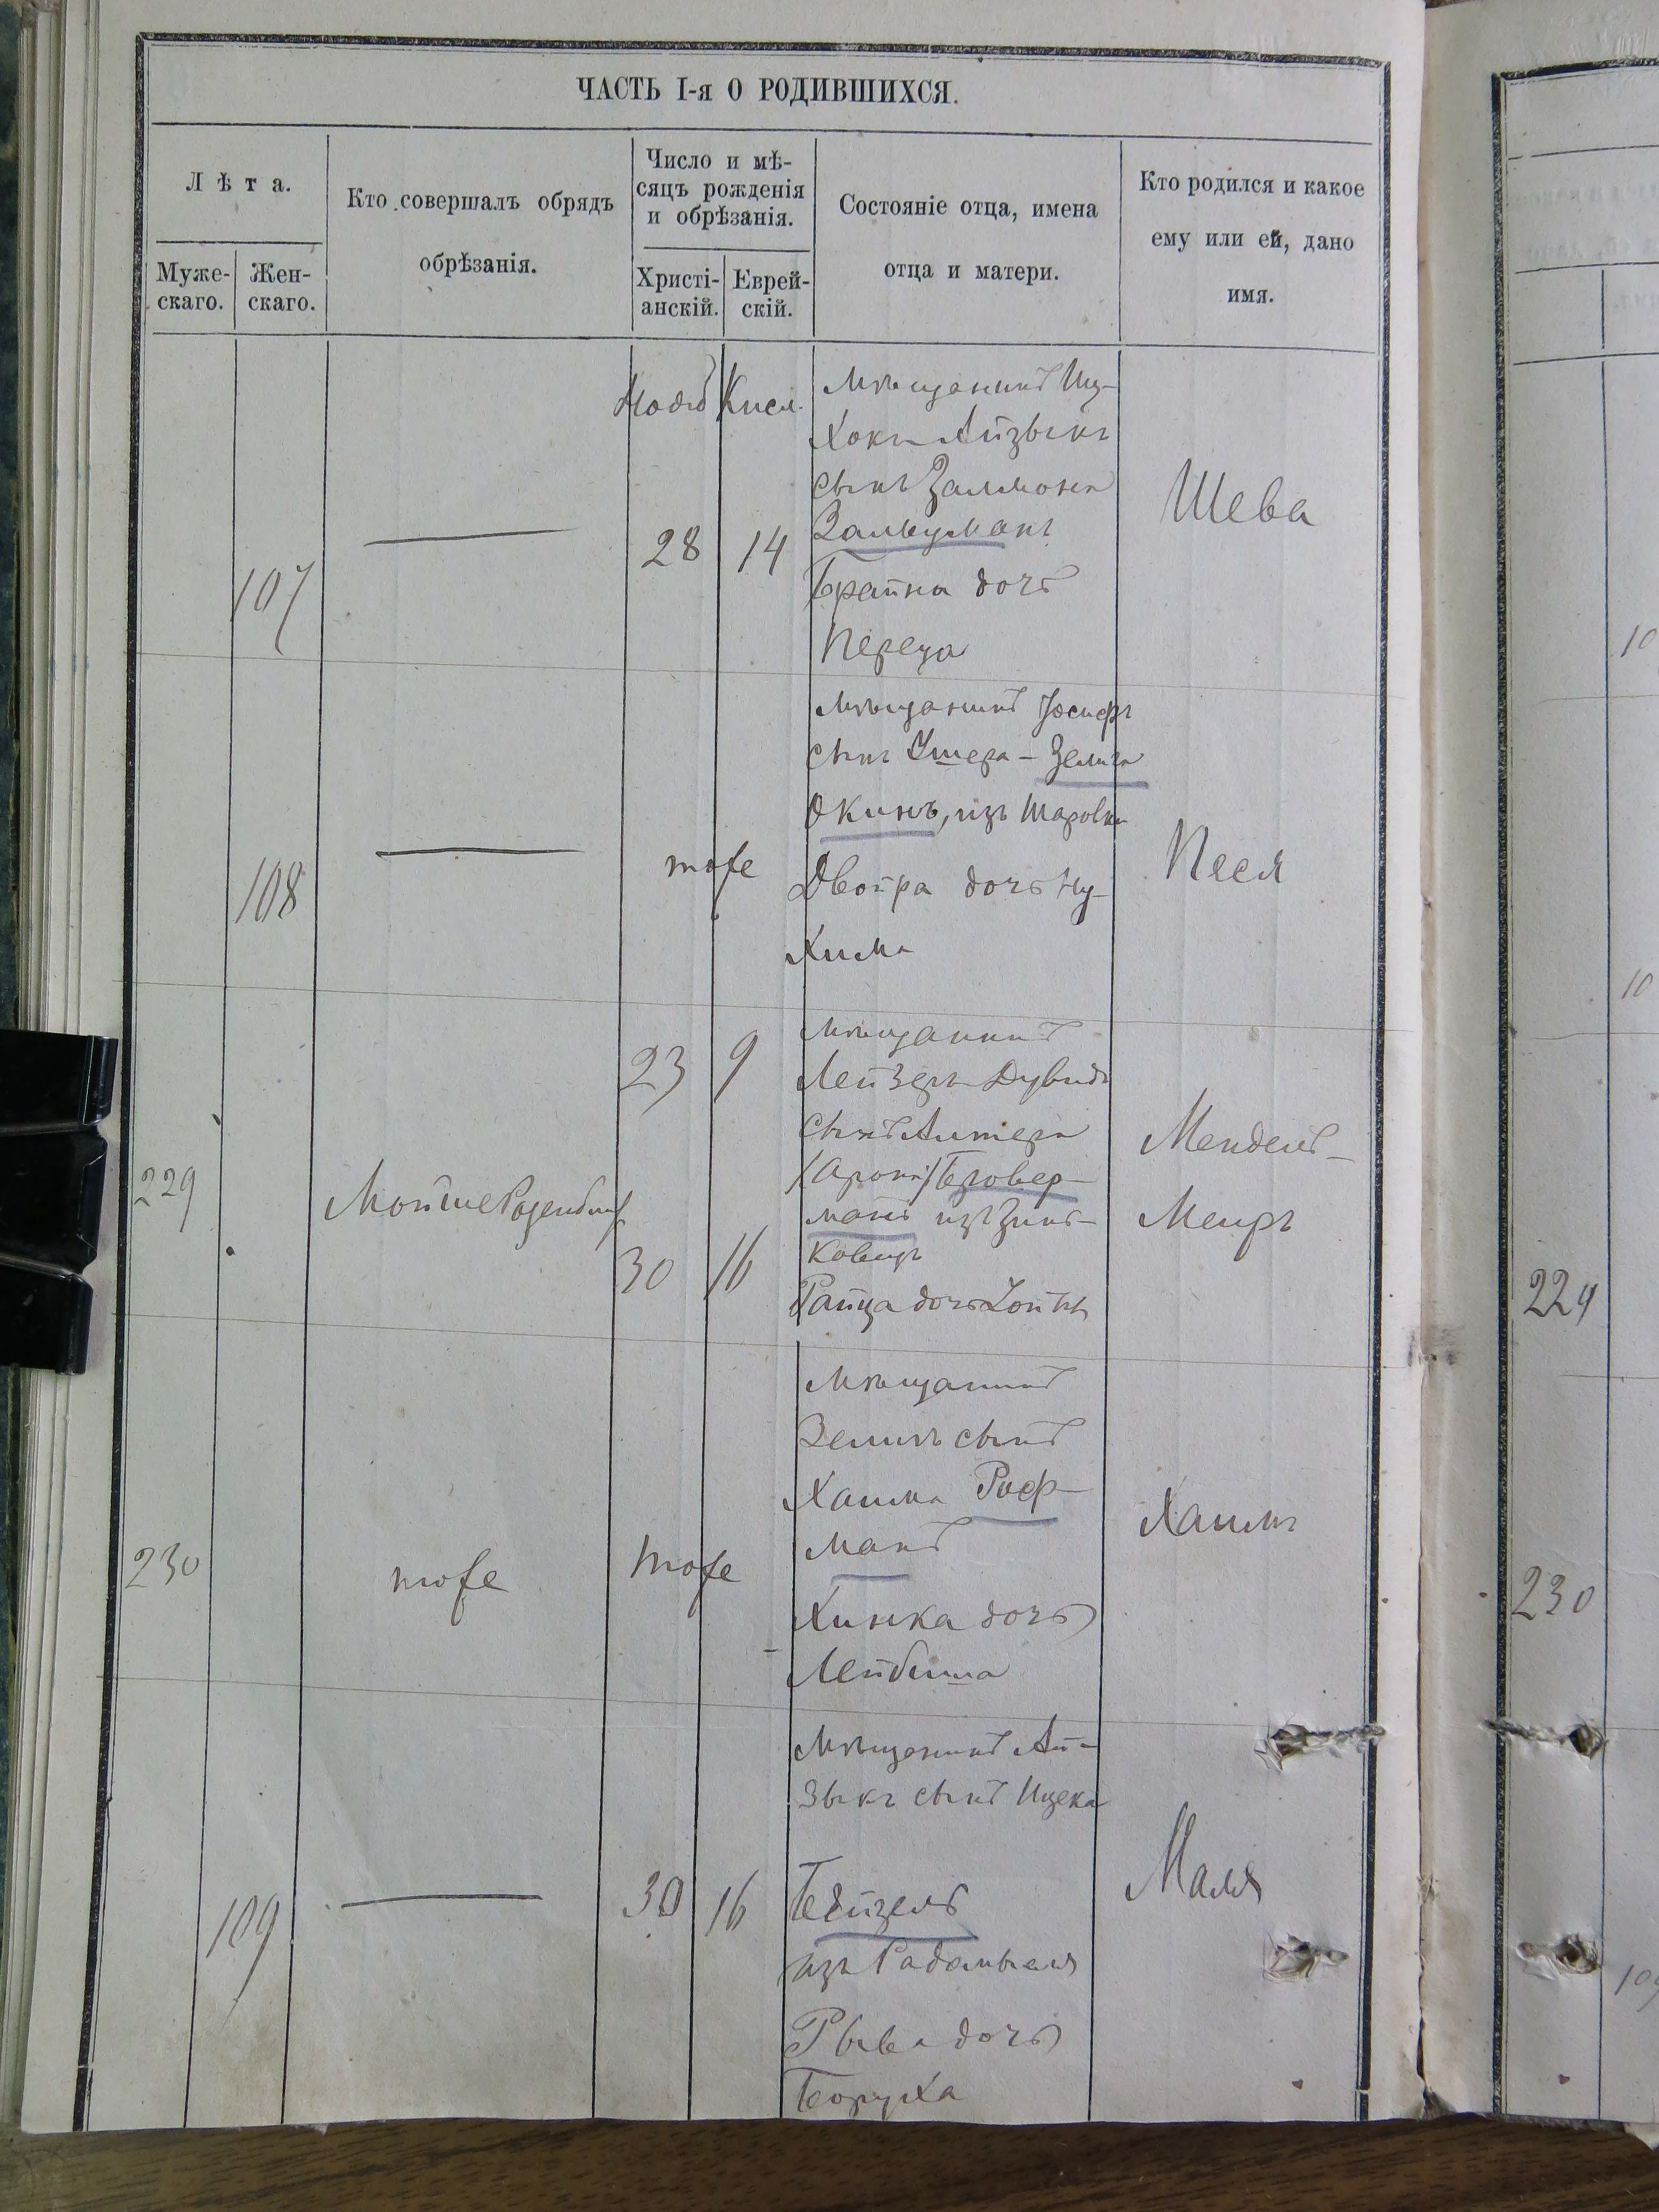 ЧАСТЬ I-я О РОДИВШИХСЯ.
Лѣта.
Муже-
скаго.
Жен-
скаго.
Кто совершалъ обрядъ
обрѣзанія.
Число и мѣ-
сяцъ рожденія
и обрѣзанія.
Христі-
анскій.
Еврей-
скій.
Состояніе отца, имена
отца и матери.
Кто родился и какое
ему или ей, дано
имя.
107
Нояб Кисл.
28 14
Мѣщанинъ Иц-
хокъ-Айзыкъ
сынъ Залмона
Зальцманъ
Брайна дочь
Переца
Шева
108
тоже
Мѣщанинъ Іосифъ
сынъ Ушера-Зелига
Окинъ, изъ Шаровки
Двойра дочь Ну-
хима
Песя
229
23 9
30 16
Мѣщанинъ
Лейзеръ-Дувидъ
сынъ Алтера
/Арона/ Бровер-
манъ изъ Зинь-
ковецъ
Дочь
Мендель-
Меиръ
230
тоже
тоже
Мѣщанинъ
Зелигъ сынъ
Хаима Роф-
манъ
Хинка дочь
Лейбиша
Хаимъ
109
30 16
Мѣщанинъ Ай-
зыкъ сынъ Ицека
Бейзель
изъ Радомысля
Рыва дочь
Боруха
Маля
10
10
229
230
109